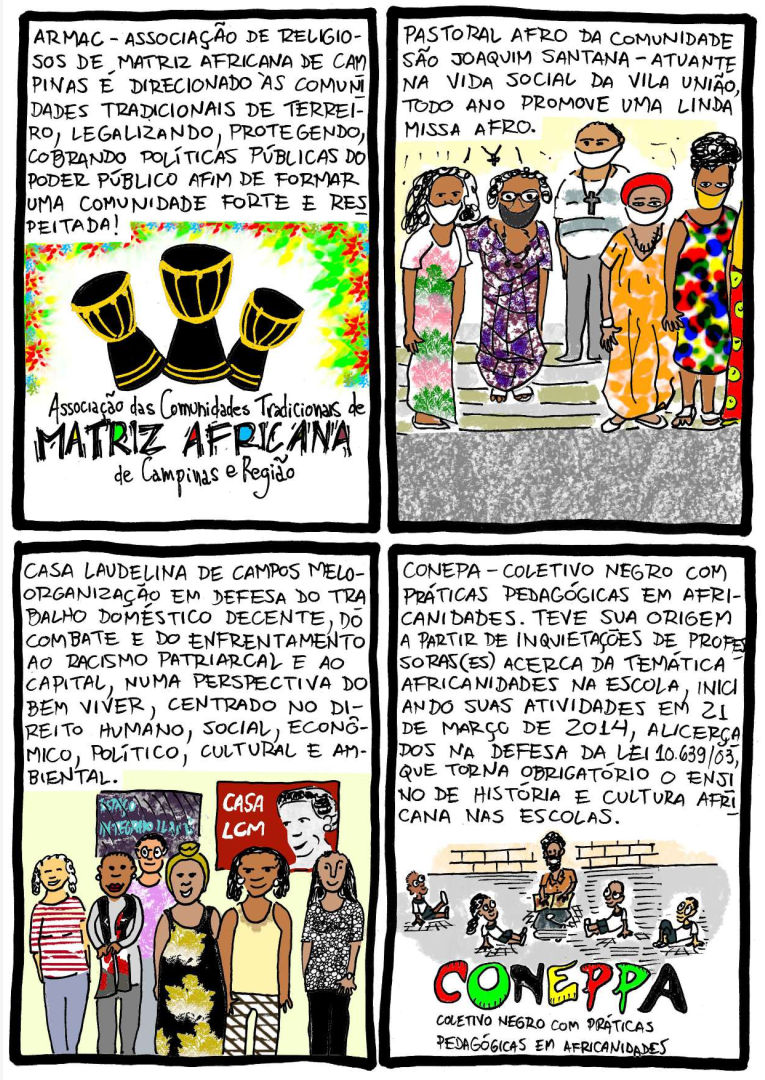 ARMAC - ASSOCIAÇÃO DE RELIGIO-
SOS DE MATRIZ AFRICANA DE CAM
PINAS É DIRECIONADO ÀS COMUNI
DADES TRADICIONAIS DE TERREI-
RO, LEGALIZANDO, PROTEGENDO,
COBRANDO POLÍTICAS PÚBLICAS DO
PODER PÚBLICO AFIM DE FORMAR
UMA COMUNIDADE FORTE E RES
PEITADA!
Associação das Comunidades Tradicionais de
MATRIZ AFRICANA
de Campinas e Região
PASTORAL AFRO DA COMUNIDADE
SÃO JOAQUIM SANTANA - ATUANTE
NA VIDA SOCIAL DA VILA UNIÃO,
TODO ANO PROMOVE UMA LINDA
MISSA AFRO.
CASA LAUDELINA DE CAMPOS MELO-
ORGANIZAÇÃO EM DEFESA DO TRA
BALHO DOMÉSTICO DECENTE, DO
COMBATE E DO ENFRENTAMENTO
AO RACISMO PATRIARCAL E AO
CAPITAL, NUMA PERSPECTIVA DO
BEM VIVER, CENTRADO NO DI-
REITO HUMANO, SOCIAL, ECONÔ-
MICO, POLÍTICO, CULTURAL E AM-
BIENTAL.
ESPAÇO
INTEGRADO
CASA
LCM
CONEPA - COLETIVO NEGRO COM
PRÁTICAS PEDAGÓGICAS EM AFRI-
CANIDADES. TEVE SUA ORIGEM
A PARTIR DE INQUIETAÇÕES DE PROFES
SORAS(ES) ACERCA DA TEMÁTICA
AFRICANIDADES NA ESCOLA, INICI
ANDO SUAS ATIVIDADES EM 21
DE MARÇO DE 2014, ALICERÇA
DOS NA DEFESA DA LEI 10.639/03,
QUE TORNA OBRIGATÓRIO O ENSI
NO DE HISTÓRIA E CULTURA AFRI
CANA NAS ESCOLAS.
CONEPPA
COLETIVO NEGRO COM PRÁTICAS
PEDAGÓGICAS EM AFRICANIDADES